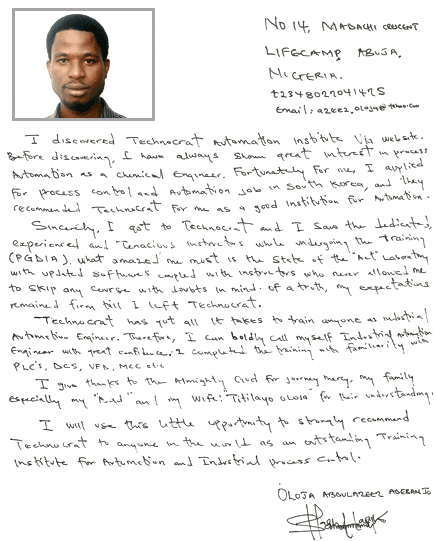 No 14, MADACHI CRESCENT
LIFECAMP, ABUJA,
NIGERIA.
+2348027041475
Email: azeez_oloja@yahoo.com
I discovered Technocrat Automation Institute Via website.
Before discovering, I have always shown great interest in process
Automation as a chemical Engineer. Fortunately for me, I applied
for process control and Automation job in South Korea, and they
recommended Technocrat for me as a good institution for Automation.
Sincerely, I got to Technocrat and I saw the dedicated,
experienced and Tenacious instructors while undergoing the training
(PGDIA), what amazed me most is the State of the "Art" Laboratory
with updated softwares coupled with instructors who never allowed me
to skip any course with doubts in mind. of a truth, my expectations
remained firm till I left Technocrat.
"Technocrat has got all it takes to train anyone as industrial
Automation Engineer. Therefore, I can boldly call myself Industrial Automation
Engineer with great confidence. I completed the training with familiarity with
PLC's, DCS, VFD, MCC etc
I give thanks to the Almighty God for journey mercy, my family
especially my "Dad" and my Wife: "Titilayo OLOJA" for their understanding.
I will use this little oppurtunity to strongly recommend
Technocrat to anyone in the world as an outstanding Training
Institute for Automation and Industrial process control.
OLOJA ABDULAZEEZ ADEBANJO